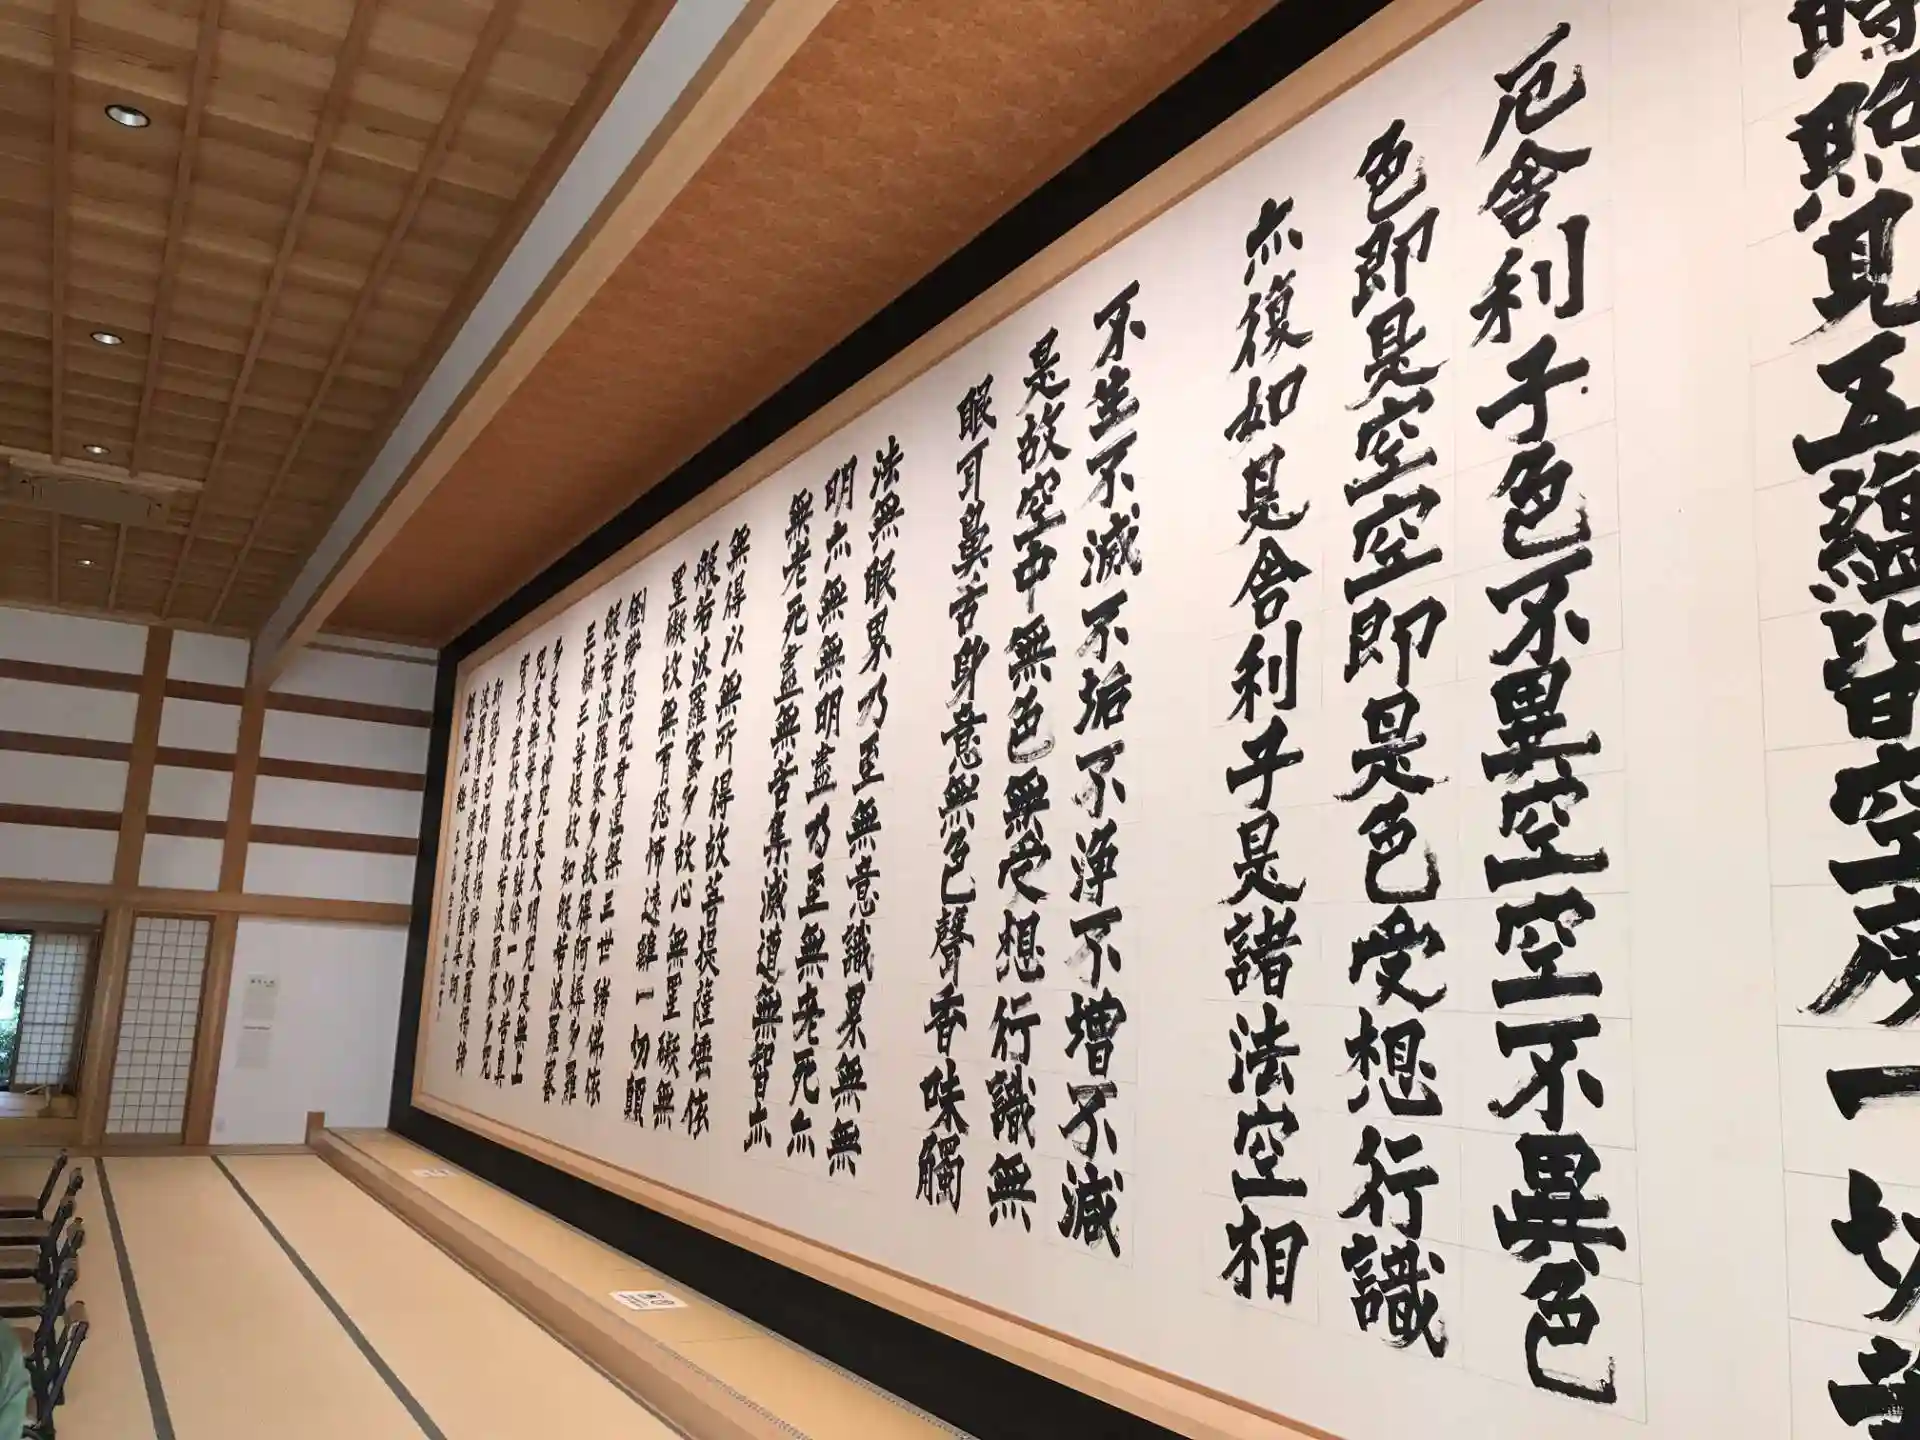 時照見五蘊皆空度一切苦
厄舍利子色不異空空不異色
色即是空空即是色受想行識
亦復如是舍利子是諸法空相
不生不滅不垢不浄不増不減
是故空中無色無受想行識無
眼耳鼻舌身意無色聲香味觸
法無眼界乃至無意識界無無
明亦無無明盡乃至無老死亦
無老死盡無苦集滅道無智亦
無得以無所得故菩提薩埵依
般若波羅蜜多故心無罣礙無
罣礙故無有恐怖遠離一切顛
倒夢想究竟涅槃三世諸佛依
般若波羅蜜多故得阿耨多羅
三藐三菩提故知般若波羅蜜
多是大神咒是大明咒是無上
咒是無等等咒能除一切苦真
實不虚故説般若波羅蜜多咒
即説咒曰揭諦揭諦波羅揭諦
波羅僧揭諦菩提薩婆訶
般若心經